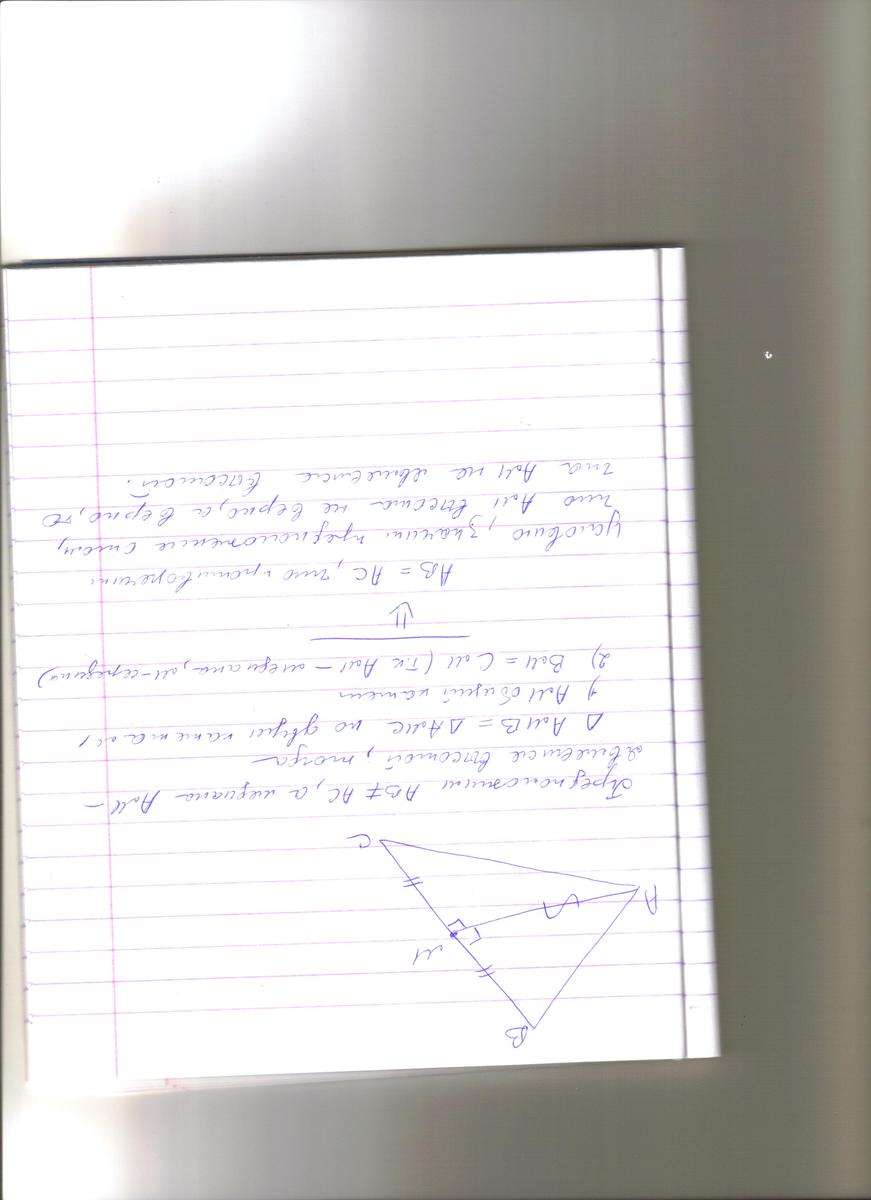 B
M
A
C
Предположим AB ≠ AC, а медиана AM –
является высотой, тогда
△ AMB = △ AMC по двум катетам
1) AM общий катет
2) BM = CM (т.к AM – медиана, M – середина)
⇓
AB = AC, что противоречит
условию, значит предположение о том,
что AM высота не верно, а верно, то
что AM не является высотой.